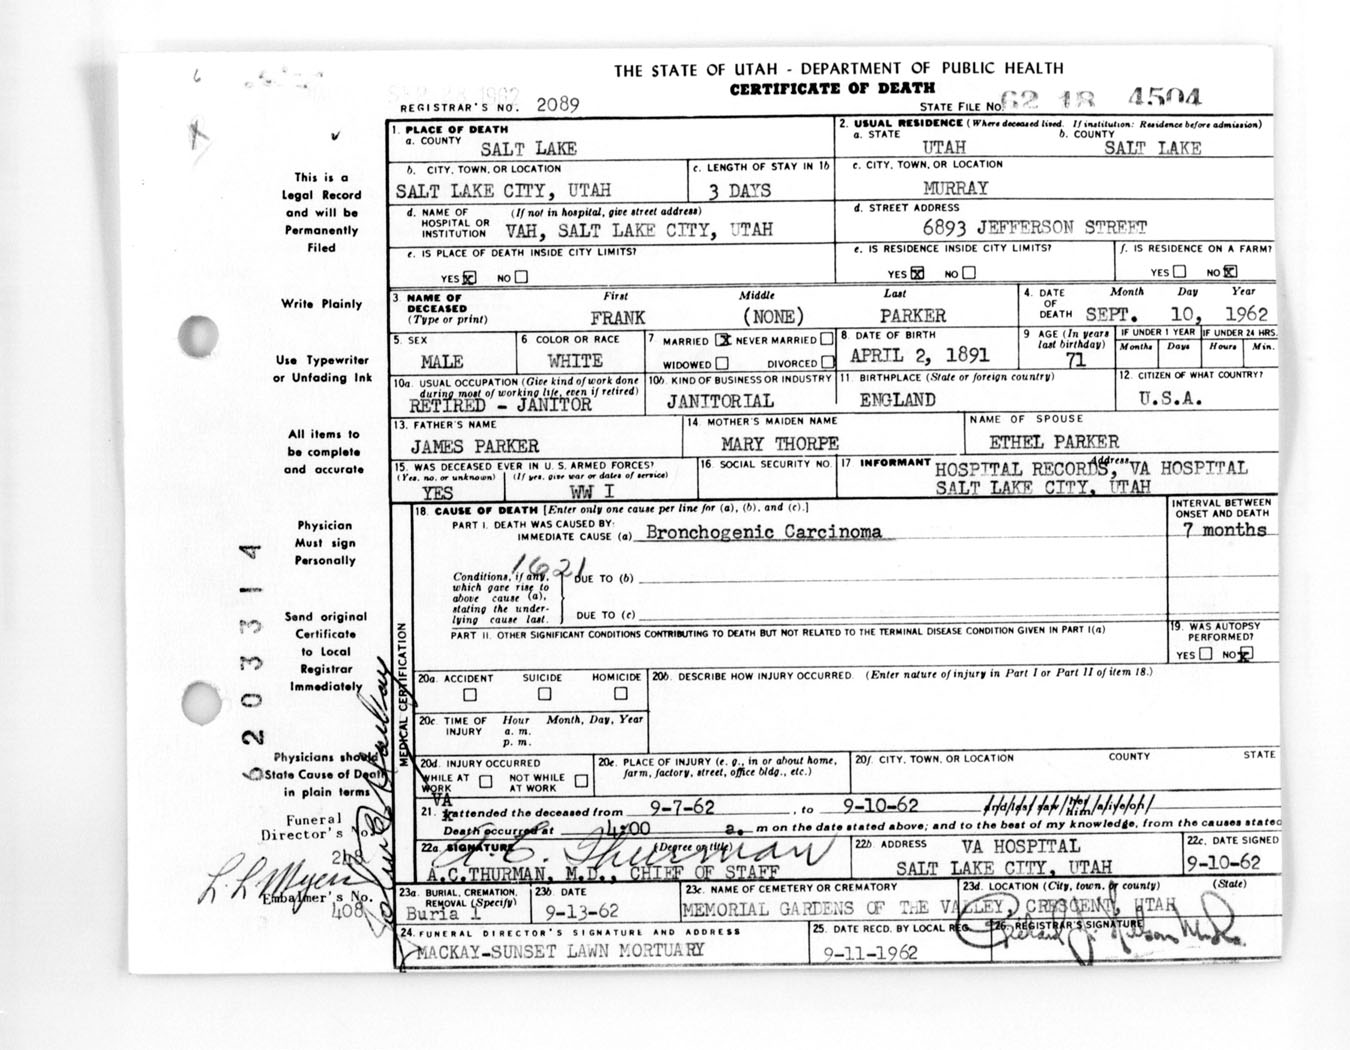 THE STATE OF UTAH - DEPARTMENT OF PUBLIC HEALTH
CERTIFICATE OF DEATH
REGISTRAR'S NO. 2089
STATE FILE NO. 62 18 4504
1. PLACE OF DEATH
a. COUNTY SALT LAKE
2. USUAL RESIDENCE (Where deceased lived. If institution: Residence before admission)
a. STATE UTAH b. COUNTY SALT LAKE
b. CITY, TOWN, OR LOCATION SALT LAKE CITY, UTAH
c. LENGTH OF STAY IN 1b 3 DAYS
c. CITY, TOWN, OR LOCATION MURRAY
d. NAME OF HOSPITAL OR INSTITUTION (If not in hospital, give street address) VAH, SALT LAKE CITY, UTAH
d. STREET ADDRESS 6893 JEFFERSON STREET
e. IS PLACE OF DEATH INSIDE CITY LIMITS? YES X NO
e. IS RESIDENCE INSIDE CITY LIMITS? YES X NO
f. IS RESIDENCE ON A FARM? YES NO X
3. NAME OF DECEASED (Type or print) First FRANK Middle (NONE) Last PARKER
4. DATE OF DEATH Month Day Year SEPT. 10, 1962
5. SEX MALE
6 COLOR OR RACE WHITE
7 MARRIED X NEVER MARRIED WIDOWED DIVORCED
8. DATE OF BIRTH APRIL 2, 1891
9 AGE (In years last birthday) 71
IF UNDER 1 YEAR Months Days
IF UNDER 24 HRS. Hours Min.
10a. USUAL OCCUPATION (Give kind of work done during most of working life, even if retired) RETIRED - JANITOR
10b. KIND OF BUSINESS OR INDUSTRY JANITORIAL
11 BIRTHPLACE (State or foreign country) ENGLAND
12. CITIZEN OF WHAT COUNTRY? U.S.A.
13. FATHER'S NAME JAMES PARKER
14. MOTHER'S MAIDEN NAME MARY THORPE
NAME OF SPOUSE ETHEL PARKER
15. WAS DECEASED EVER IN U.S. ARMED FORCES? (Yes, no, or unknown) (If yes, give war or dates of service) YES WW I
16. SOCIAL SECURITY NO.
17 INFORMANT Address HOSPITAL RECORDS, VA HOSPITAL
SALT LAKE CITY, UTAH
MEDICAL CERTIFICATION
18. CAUSE OF DEATH [Enter only one cause per line for (a), (b), and (c).]
INTERVAL BETWEEN ONSET AND DEATH
PART I. DEATH WAS CAUSED BY:
IMMEDIATE CAUSE (a) Bronchogenic Carcinoma 7 months
1621
Conditions, if any, which gave rise to above cause (a), stating the underlying cause last.
DUE TO (b)
DUE TO (c)
PART II. OTHER SIGNIFICANT CONDITIONS CONTRIBUTING TO DEATH BUT NOT RELATED TO THE TERMINAL DISEASE CONDITION GIVEN IN PART I(a)
19. WAS AUTOPSY PERFORMED? YES NO X
20a. ACCIDENT SUICIDE HOMICIDE
20b. DESCRIBE HOW INJURY OCCURRED. (Enter nature of injury in Part I or Part II of item 18.)
20c. TIME OF INJURY Hour Month, Day, Year
a. m.
p. m.
20d. INJURY OCCURRED WHILE AT WORK NOT WHILE AT WORK
20e. PLACE OF INJURY (e. g., in or about home, farm, factory, street, office bldg., etc.)
20f. CITY, TOWN, OR LOCATION COUNTY STATE
21. VA attended the deceased from 9-7-62, to 9-10-62
Death occurred at 4:00 a. m on the date stated above; and to the best of my knowledge, from the causes stated
22a. SIGNATURE (Degree or title) A. C. Thurman
A.C.THURMAN, M.D., CHIEF OF STAFF
22b. ADDRESS VA HOSPITAL
SALT LAKE CITY, UTAH
22c. DATE SIGNED 9-10-62
23a. BURIAL, CREMATION, REMOVAL (Specify) Buria l
23b. DATE 9-13-62
23c. NAME OF CEMETERY OR CREMATORY MEMORIAL GARDENS OF THE VALLEY,
23d. LOCATION (City, town, or county) (State) CRESCENT, UTAH
24. FUNERAL DIRECTOR'S SIGNATURE AND ADDRESS MACKAY-SUNSET LAWN MORTUARY
25. DATE RECD. BY LOCAL REG. 9-11-1962
26. REGISTRAR'S SIGNATURE
This is a
Legal Record
and will be
Permanently
Filed
Write Plainly
Use Typewriter
or Unfading Ink
All items to
be complete
and accurate
Physician
Must sign
Personally
Send original
Certificate
to Local
Registrar
Immediately
Physicians should
State Cause of Death
in plain terms
Funeral
Director's No.
L. L. Myers
Embalmer's No.
408